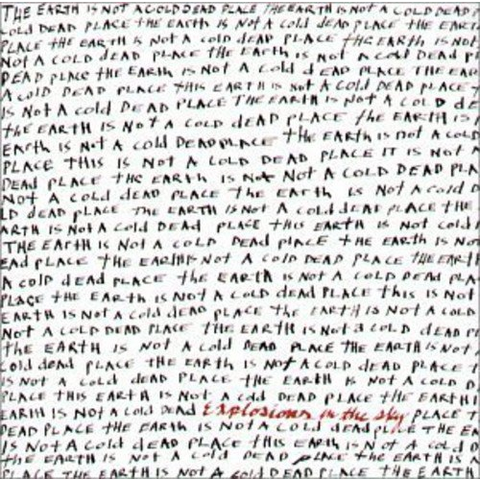 THE EARTH IS NOT A COLD DEAD PLACE THE EARTH IS NOT A COLD DEAD P
COLD DEAD PLACE THE EARTH IS NOT A COLD DEAD PLACE THE EART
PLACE THE EARTH IS NOT A COLD DEAD PLACE THE EARTH IS NOT
NOT A COLD DEAD PLACE THE EARTH IS NOT A COLD DEAD P
DEAD PLACE THE EARTH IS NOT A COLD DEAD PLACE THE EAR
A COLD DEAD PLACE THIS EARTH IS NOT A COLD DEAD PLACE
IS NOT A COLD DEAD PLACE THE EARTH IS NOT A COLD DE
THE EARTH IS NOT A COLD DEAD PLACE THE EARTH IS
EARTH IS NOT A COLD DEAD PLACE THE EARTH IS NOT A COLD
PLACE THIS IS NOT A COLD DEAD PLACE IT IS NOT A
DEAD PLACE THE EARTH IS NOT NOT A COLD DEAD PLA
NOT A COLD DEAD PLACE THE EARTH IS NOT A COLD D
LD DEAD PLACE THE EARTH IS NOT A COLD DEAD PLACE THE
ARTH IS NOT A COLD DEAD PLACE THIS EARTH IS NOT COLD
THE EARTH IS NOT A COLD DEAD PLACE THE EARTH IS NO
EAD PLACE THE EARTH IS NOT A COLD DEAD PLACE THE EART
A COLD DEAD PLACE THE EARTH IS NOT A COLD DEAD PLA
PLACE THE EARTH IS NOT A COLD DEAD PLACE THIS IS NOT
EARTH IS NOT A COLD DEAD PLACE THE EARTH IS NOT A COLD
NOT A COLD DEAD PLACE THE EARTH IS NOT A COLD DEAD P
THE EARTH IS NOT A COLD DEAD PLACE THE EARTH IS NOT
COLD DEAD PLACE THE EARTH IS NOT A COLD DEAD PLACE T
IS NOT A COLD DEAD PLACE THE EARTH IS NOT A COLD D
PLACE THIS EARTH IS NOT A COLD DEAD PLACE THE EARTH I
EARTH IS NOT A COLD DEAD Explosions in the sky PLACE T
DEAD PLACE THE EARTH IS NOT A COLD DEAD PLACE THE EA
IS NOT A COLD DEAD PLACE THIS EARTH IS NOT A COLD D
THE EARTH IS NOT A COLD DEAD PLACE THE EARTH IS
PLACE THE EARTH IS NOT A COLD DEAD PLACE THE EARTH